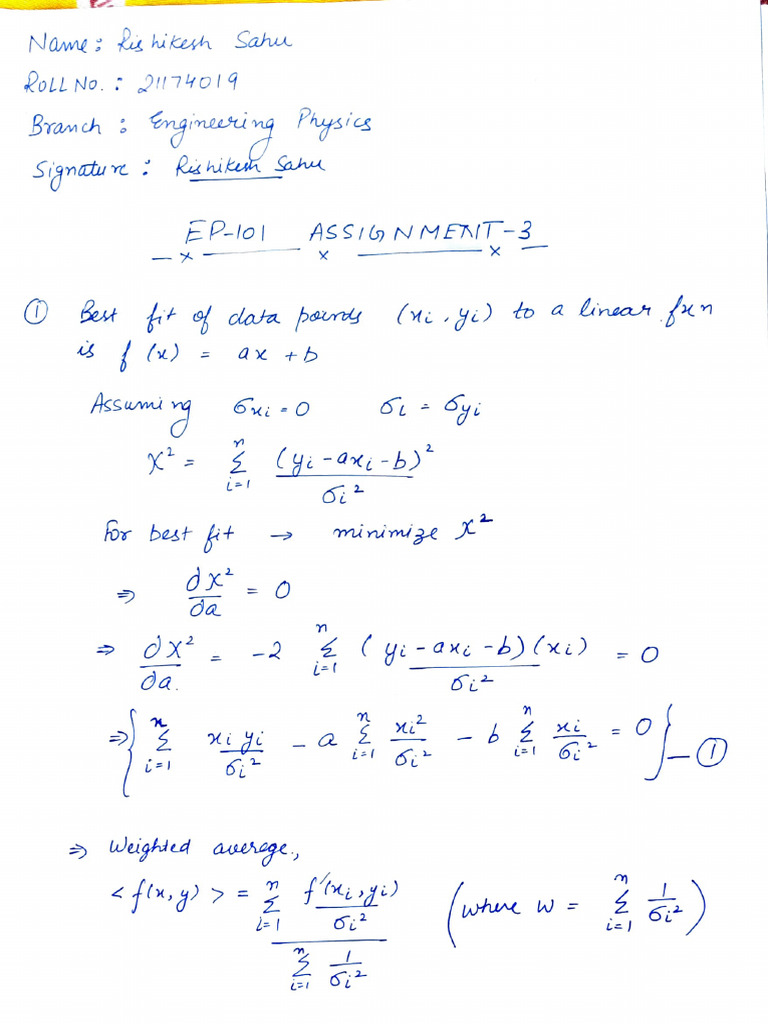 Name: Rishikesh Sahu
ROLL NO. : 21174019
Branch : Engineering Physics
Signature : Rishikesh Sahu
EP-101 ASSIGNMENT-3
① Best fit of data poinds (xi, yi) to a linear fxn
is f(x) = ax + b
Assuming σxi = 0 σi = σyi
χ² = Σ_{i=1}^{n} (yi - axi - b)² / σi²
For best fit → minimize χ²
⇒ dχ²/da = 0
⇒ dχ²/da. = -2 Σ_{i=1}^{n} (yi - axi - b)(xi) / σi² = 0
⇒ { Σ_{i=1}^{n} xi yi / σi² - a Σ_{i=1}^{n} xi² / σi² - b Σ_{i=1}^{n} xi / σi² = 0 } — ①
⇒ Weighted average,
<f(x,y)> = Σ_{i=1}^{n} f'(xi, yi) / σi² / Σ_{i=1}^{n} 1 / σi² (where w = Σ_{i=1}^{n} 1 / σi²)